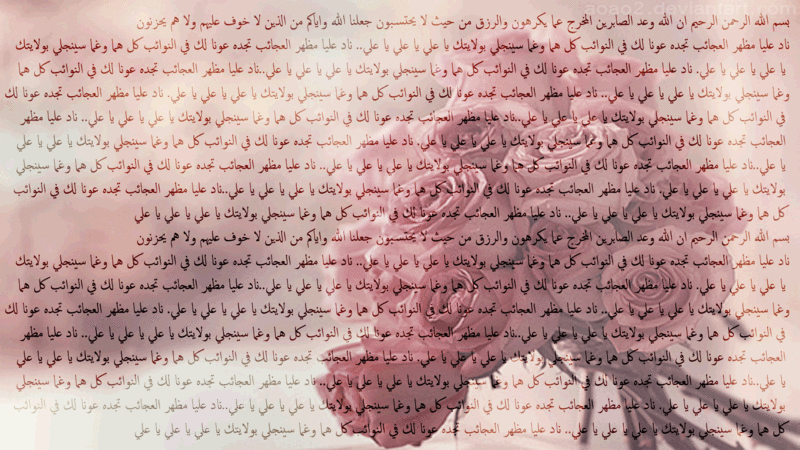 aoao2.deviantart
بسم الله الرحمن الرحيم ان الله وعد الصابرين المخرج عما يكرهون والرزق من حيث لا يحتسبون جعلنا الله واياكم من الذين لا خوف عليهم ولا هم يحزنون
ناد عليا مظهر العجائب تجده عونا لك في النوائب كل هما وغما سينجلي بولايتك يا علي يا علي يا علي.. ناد عليا مظهر العجائب تجده عونا لك في النوائب كل هما وغما سينجلي بولايتك
يا علي يا علي يا علي. ناد عليا مظهر العجائب تجده عونا لك في النوائب كل هما وغما سينجلي بولايتك يا علي يا علي يا علي..ناد عليا مظهر العجائب تجده عونا لك في النوائب كل هما
وغما سينجلي بولايتك يا علي يا علي يا علي.. ناد عليا مظهر العجائب تجده عونا لك في النوائب كل هما وغما سينجلي بولايتك يا علي يا علي يا علي. ناد عليا مظهر العجائب تجده عونا لك
في النوائب كل هما وغما سينجلي بولايتك يا علي يا علي يا علي..ناد عليا مظهر العجائب تجده عونا لك في النوائب كل هما وغما سينجلي بولايتك يا علي يا علي يا علي.. ناد عليا مظهر
العجائب تجده عونا لك في النوائب كل هما وغما سينجلي بولايتك يا علي يا علي يا علي. ناد عليا مظهر العجائب تجده عونا لك في النوائب كل هما وغما سينجلي بولايتك يا علي يا علي
يا علي..ناد عليا مظهر العجائب تجده عونا لك في النوائب كل هما وغما سينجلي بولايتك يا علي يا علي يا علي.. ناد عليا مظهر العجائب تجده عونا لك في النوائب كل هما وغما سينجلي
بولايتك يا علي يا علي يا علي. ناد عليا مظهر العجائب تجده عونا لك في النوائب كل هما وغما سينجلي بولايتك يا علي يا علي يا علي..ناد عليا مظهر العجائب تجده عونا لك في النوائب
كل هما وغما سينجلي بولايتك يا علي يا علي يا علي.. ناد عليا مظهر العجائب تجده عونا لك في النوائب كل هما وغما سينجلي بولايتك يا علي يا علي يا علي
بسم الله الرحمن الرحيم ان الله وعد الصابرين المخرج عما يكرهون والرزق من حيث لا يحتسبون جعلنا الله واياكم من الذين لا خوف عليهم ولا هم يحزنون
ناد عليا مظهر العجائب تجده عونا لك في النوائب كل هما وغما سينجلي بولايتك يا علي يا علي يا علي.. ناد عليا مظهر العجائب تجده عونا لك في النوائب كل هما وغما سينجلي بولايتك
يا علي يا علي يا علي. ناد عليا مظهر العجائب تجده عونا لك في النوائب كل هما وغما سينجلي بولايتك يا علي يا علي يا علي..ناد عليا مظهر العجائب تجده عونا لك في النوائب كل هما
وغما سينجلي بولايتك يا علي يا علي يا علي.. ناد عليا مظهر العجائب تجده عونا لك في النوائب كل هما وغما سينجلي بولايتك يا علي يا علي يا علي. ناد عليا مظهر العجائب تجده عونا لك
في النوائب كل هما وغما سينجلي بولايتك يا علي يا علي يا علي..ناد عليا مظهر العجائب تجده عونا لك في النوائب كل هما وغما سينجلي بولايتك يا علي يا علي يا علي.. ناد عليا مظهر
العجائب تجده عونا لك في النوائب كل هما وغما سينجلي بولايتك يا علي يا علي يا علي. ناد عليا مظهر العجائب تجده عونا لك في النوائب كل هما وغما سينجلي بولايتك يا علي يا علي
يا علي..ناد عليا مظهر العجائب تجده عونا لك في النوائب كل هما وغما سينجلي بولايتك يا علي يا علي يا علي.. ناد عليا مظهر العجائب تجده عونا لك في النوائب كل هما وغما سينجلي
بولايتك يا علي يا علي يا علي. ناد عليا مظهر العجائب تجده عونا لك في النوائب كل هما وغما سينجلي بولايتك يا علي يا علي يا علي..ناد عليا مظهر العجائب تجده عونا لك في النوائب
كل هما وغما سينجلي بولايتك يا علي يا علي يا علي.. ناد عليا مظهر العجائب تجده عونا لك في النوائب كل هما وغما سينجلي بولايتك يا علي يا علي يا علي